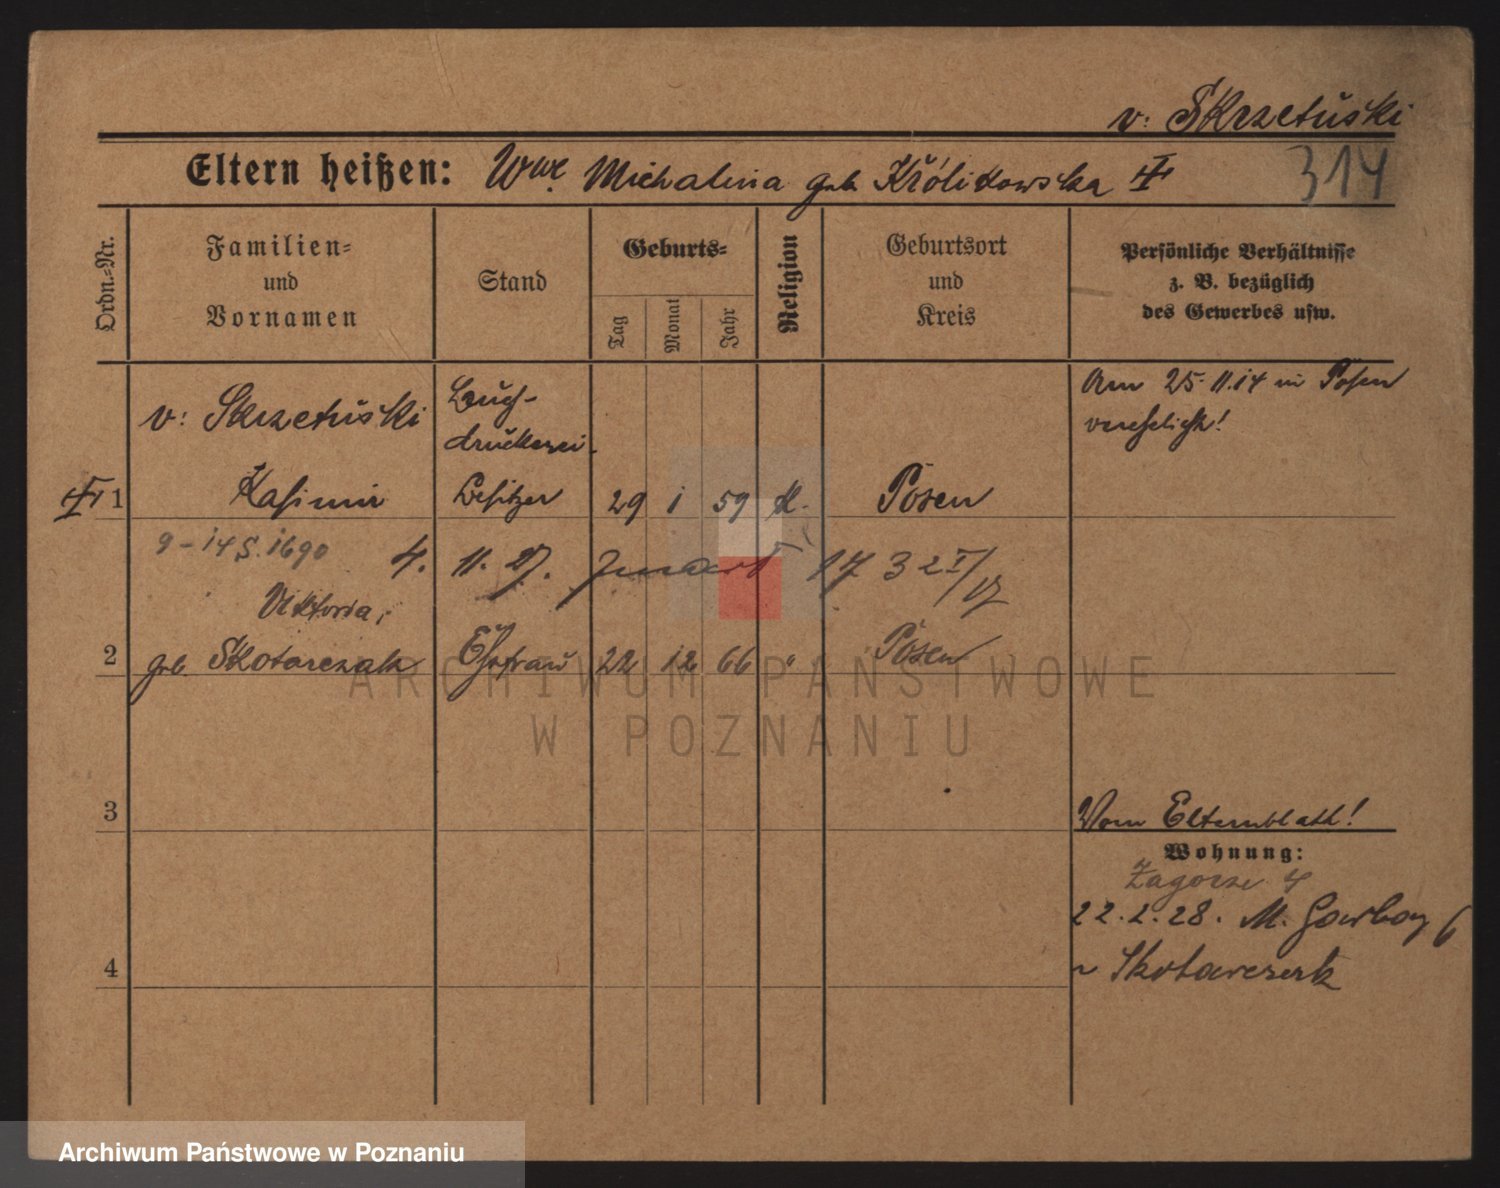 v: Skrzetuski
Eltern heißen: Wwe Michalina geb Królikowska
314
Ordn.-Nr.
Familien-
und
Vornamen
Stand
Geburts-
Tag
Monat
Jahr
Religion
Geburtsort
und
Kreis
Persönliche Verhältnisse
z. B. bezüglich
des Gewerbes usw.
v: Skrzetuski
Buch-
druckerei-
Am 25.11.14 in Posen
verehelicht!
1 Kasimir Besitzer 29 1 59 K. Posen
9-14 S. 1690 4. 11. 27.
Viktoria,
2 geb. Skotarczak Ehefrau 22 12 66 " Posen
3
Vom Elternblatt!
Wohnung:
Zagorze 4
22.2.28. M. Garbary 6
4
Skotarczak
ARCHIWUM PAŃSTWOWE
W POZNANIU
Archiwum Państwowe w Poznaniu